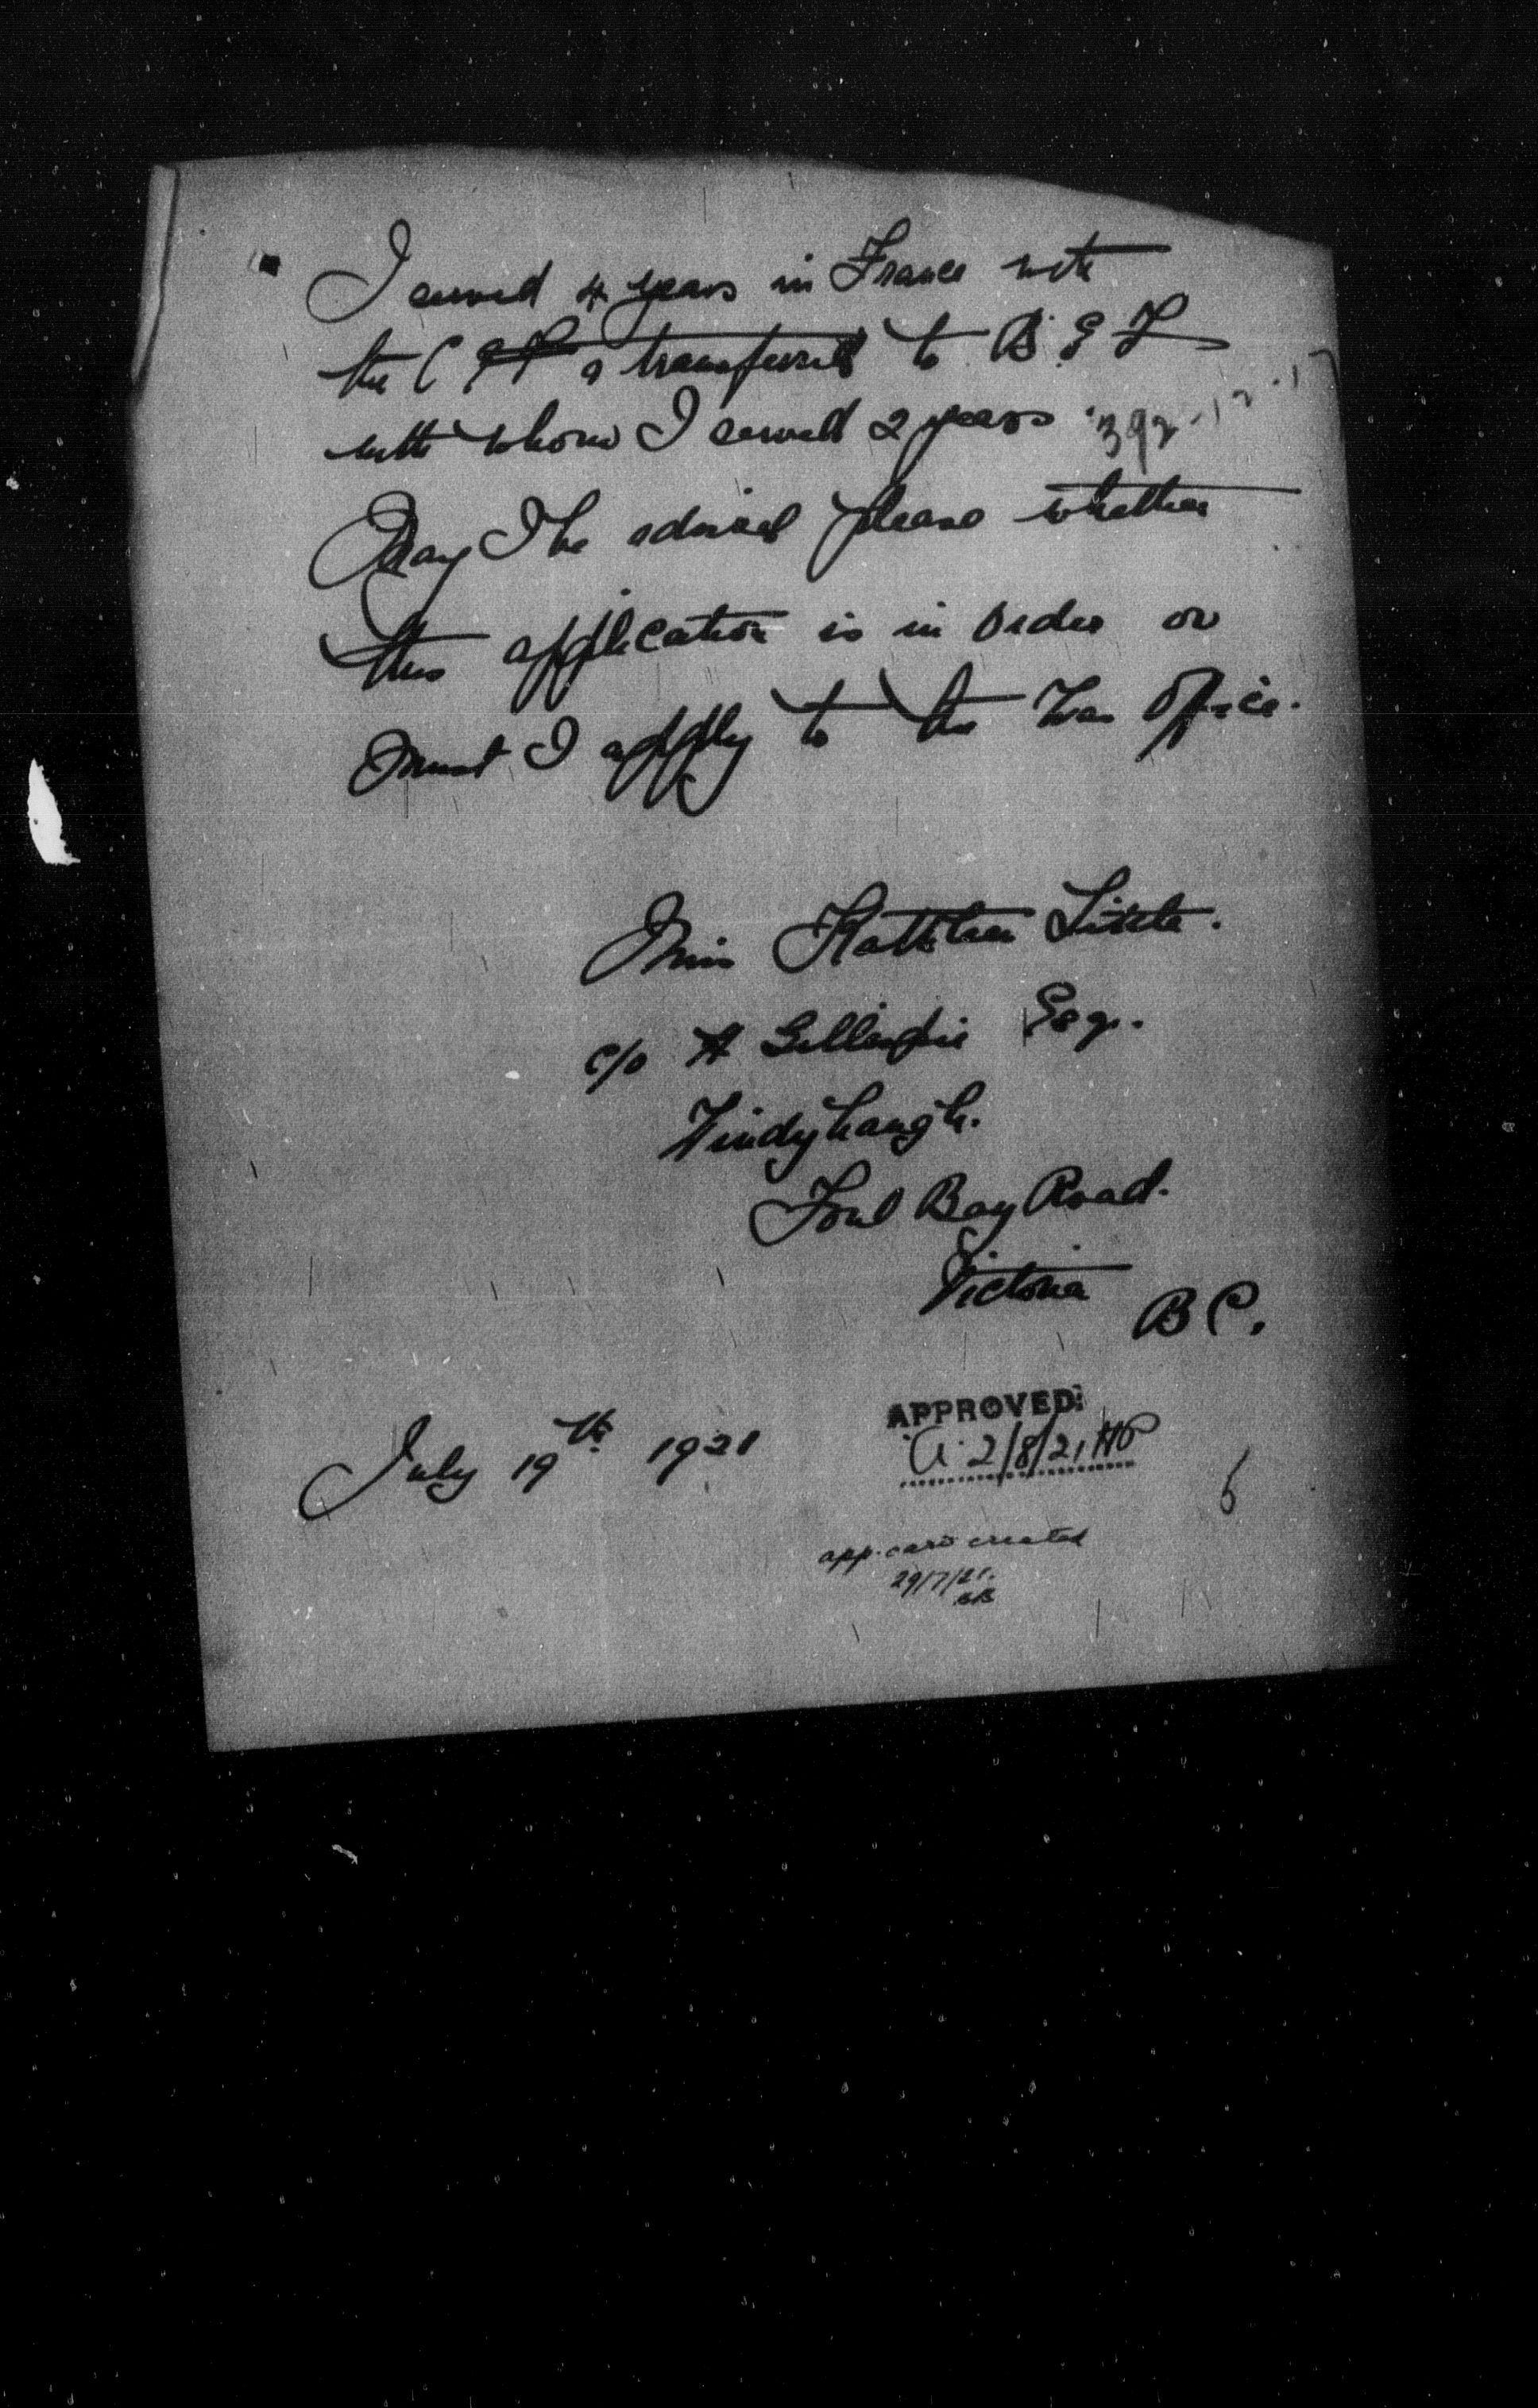 I served 4 years in France with
the C E F & transferred to B. E. F
with whom I served 2 years 392-12-1
May I be advised please whether
this application is in order or
must I apply to the War Office.
Miss Kathleen Little.
c/o H Gillespie Esq.
Windyhaugh.
Foul Bay Road.
Victoria
B C.
July 19th 1921
APPROVED
2/8/21
6
app. card created
29/7/21.